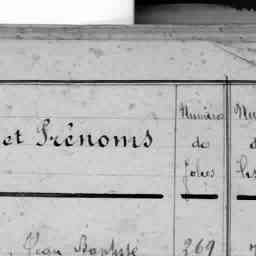 et Prénoms
Numéros
des
folios
Jean Baptiste 269